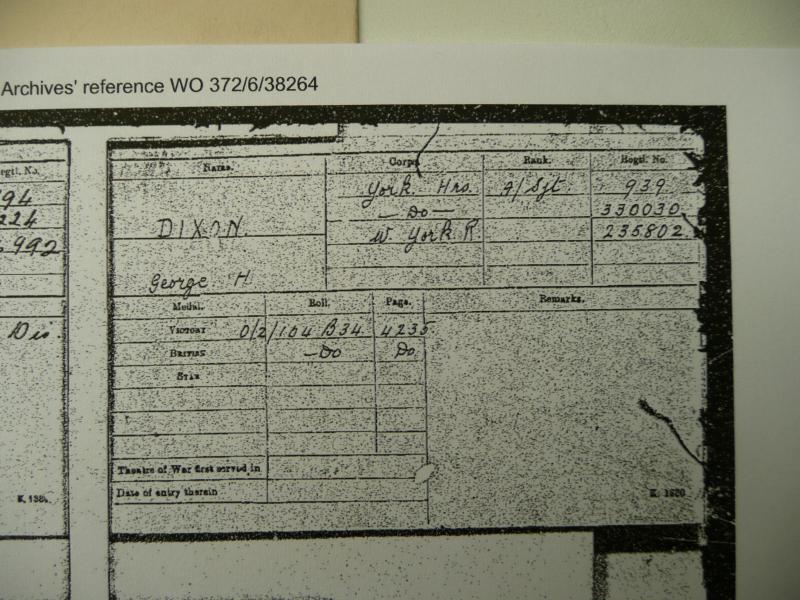 Archives' reference WO 372/6/38264
Regtl. No.
94
224
992
Dis.
K. 1380.
Name. Corps. Rank. Regtl. No.
York Hrs. A/Sjt 939
— Do — 330030
DIXON. W York R 235802
George H
Medal. Roll. Page. Remarks.
VICTORY O/2/104 B34 4235
BRITISH — Do Do
STAR
Theatre of War first served in
Date of entry therein
K. 1380